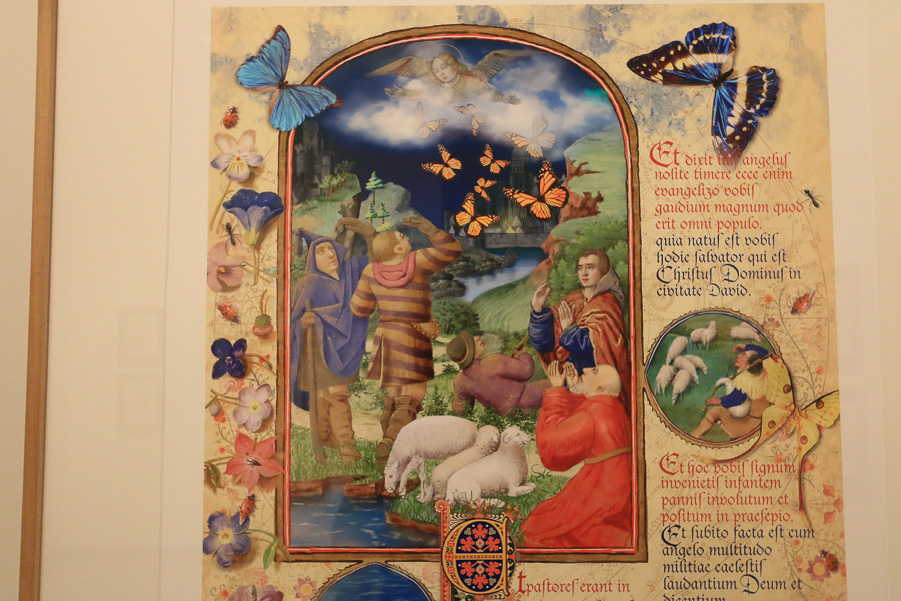 Et dixit angeluſ
nolite timere ecce enim
evangelizo vobiſ
gaudium magnum quod
erit omni populo.
quia natuſ eſt vobiſ
hodie ſalvator qui eſt
Chriſtuſ Dominuſ in
civitate David.
Et hoc vobiſ ſignum
invenietiſ infantem
panniſ involutum et
poſitum in praeſepio.
Et ſubito facta eſt cum
angelo multitudo
militiae caeleſtiſ
laudantium Deum et
tpaſtoreſ erant in